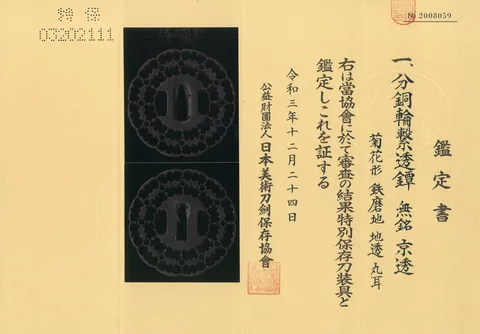 № 2008059
鑑定書
一、分銅輪繋透鐔 無銘 京透
菊花形 鉄磨地 地透 丸耳
右は當協會に於て審査の結果特別保存刀装具と
鑑定しこれを証する
令和三年十二月二十四日
公益財團法人 日本美術刀劍保存協會
03202111